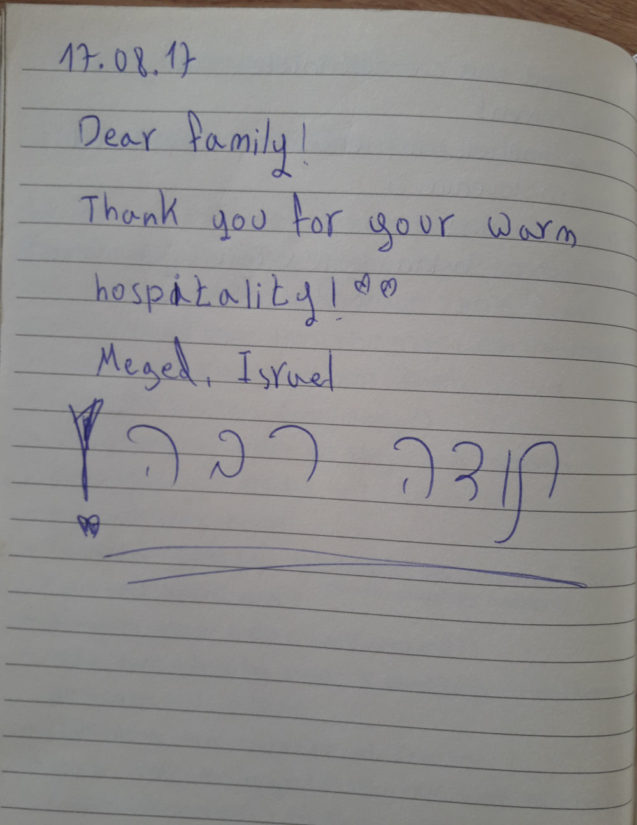 17.08.17
Dear family!
Thank you for your warm
hospitality!
Meged, Israel
תודה רבה!